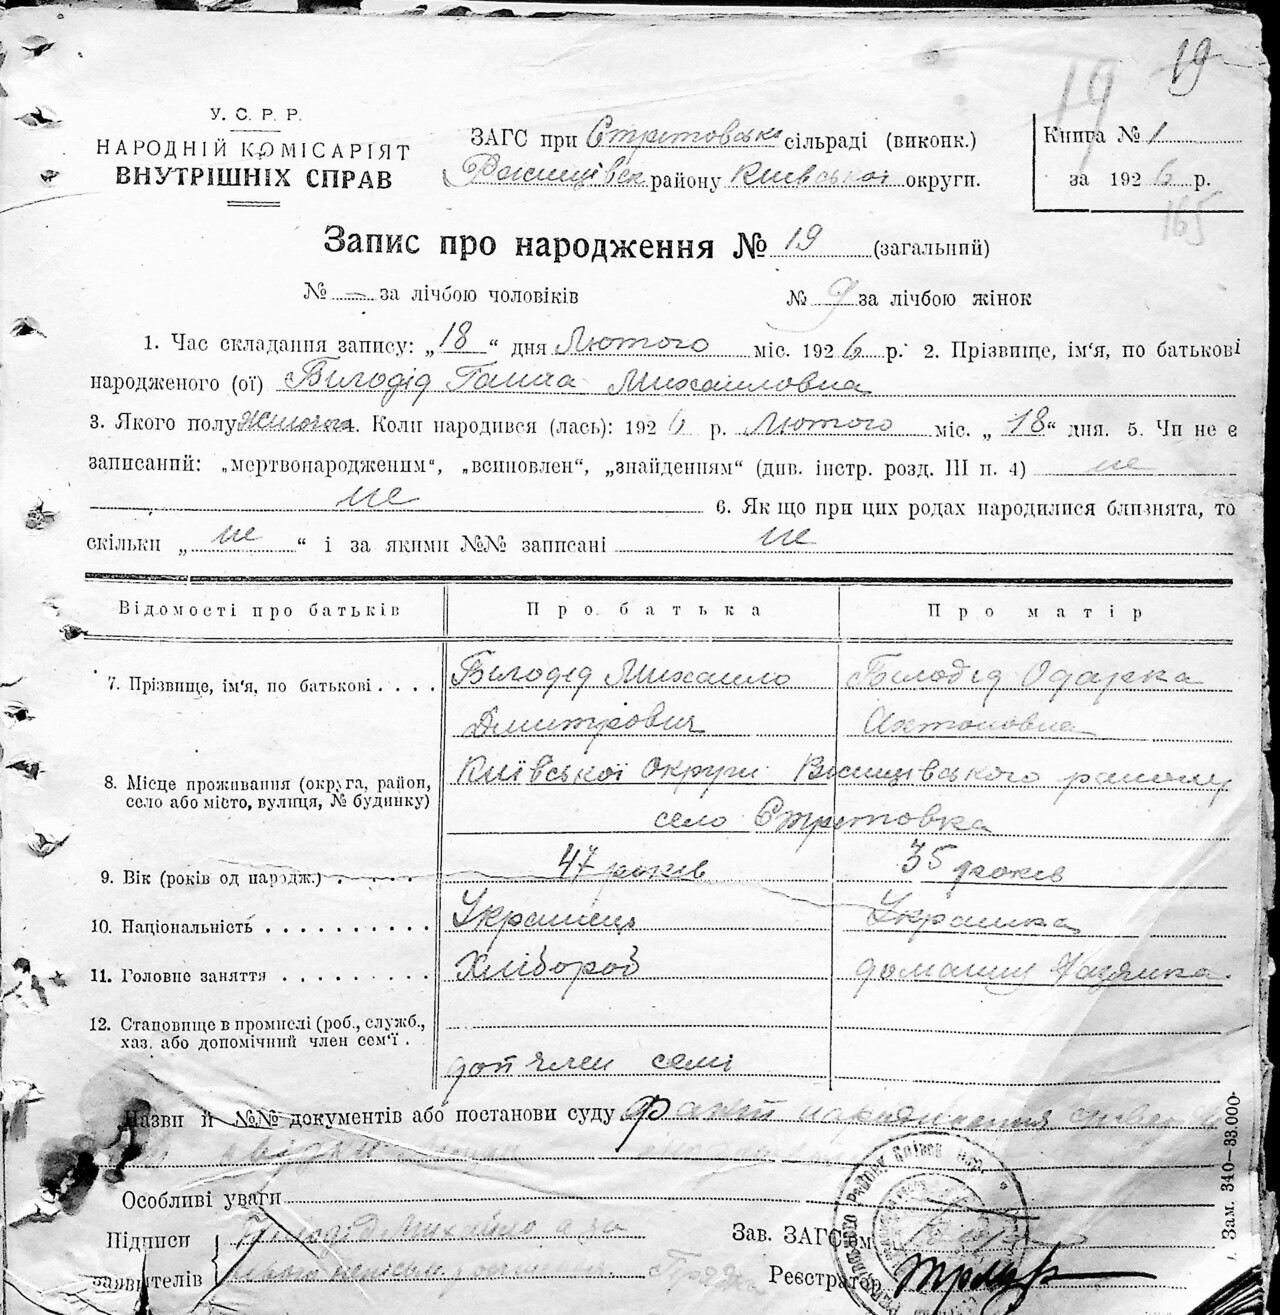 19 19
У. С. Р. Р.
НАРОДНІЙ КОМІСАРІЯТ
ВНУТРІШНІХ СПРАВ
ЗАГС при Стритовські сільраді (виконк.)
району Київської округи.
Книга № 1
за 1926 р.
165
Запис про народження № 19 (загальний)
№ – за лічбою чоловіків № 9 за лічбою жінок
1. Час складання запису: „18“ дня Лютого міс. 1926 р. 2. Прізвище, ім'я, по батькові
народженого (ої) Білодід Ганна Михайловна
3. Якого полу 4. Коли народився (лась): 1926 р. Лютого міс. „18“ дня. 5. Чи не є
записаний: „мертвонародженим“, „всиновлен“, „знайденням“ (див. інстр. розд. III п. 4) не
не 6. Як що при цих родах народилися близнята, то
скільки „не“ і за якими №№ записані не
Відомості про батьків Про батька Про матір
7. Прізвище, ім'я, по батькові . . . . Білодід Михайло Білодід Одарка
Дмитрович Антоновна
8. Місце проживання (округа, район, село або місто, вулиця, № будинку) Київської Округи району
село Стритовка
9. Вік (років од народж.) . . . . . 47 років 35 років
10. Національність . . . . . . . . . . Українець Українка
11. Головне заняття . . . . . . . . . Хлібороб домашня хазяйка
12. Становище в промислі (роб., служб.,
хаз. або допомічний член сем'ї .
доп член семі
Назви й №№ документів або постанови суду
Особливі уваги
Підписи Білодід Михайло а за
заявителів
Зав. ЗАГС'ом
Реєстратор
Зам. 340—33.000-